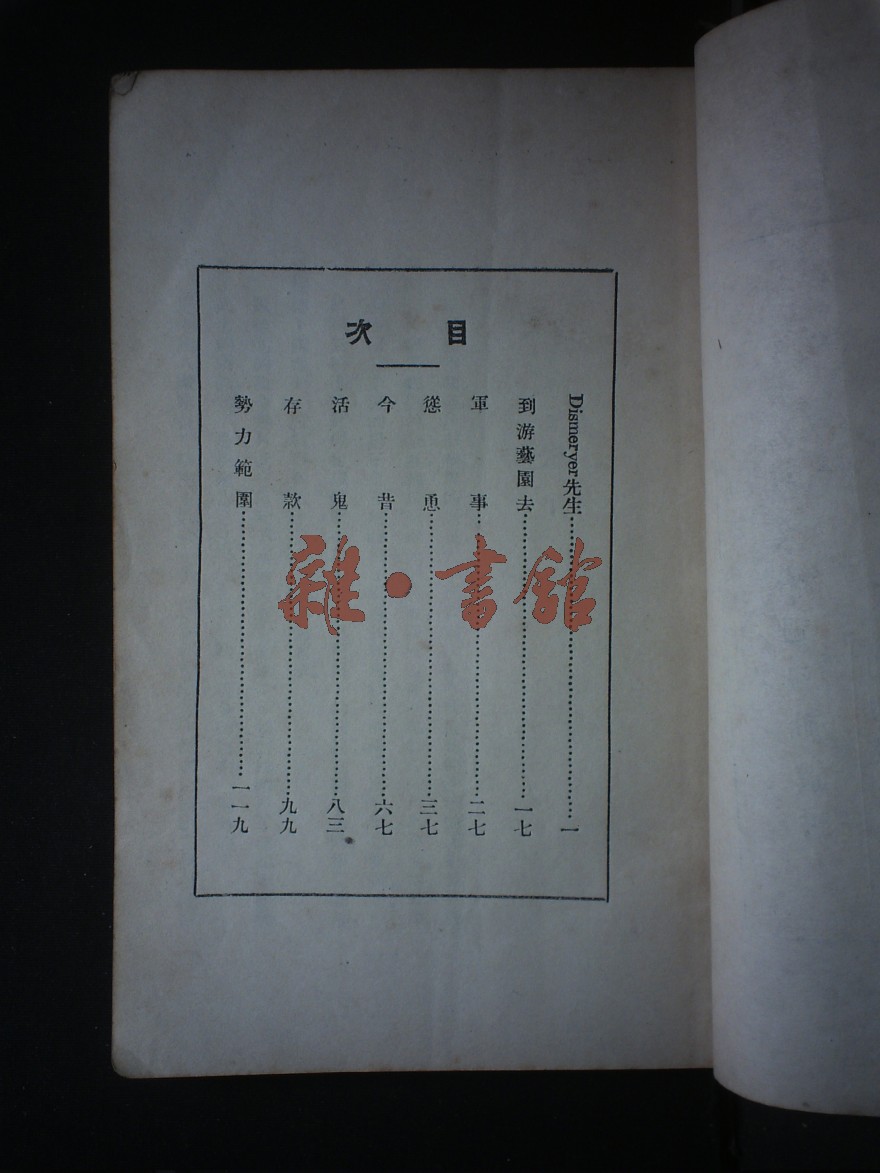 目次
Dismeryer先生……一
到游藝園去……一七
軍事……二七
慫恿……三七
今昔……六七
活鬼……八三
存款……九九
勢力範圍……一一九
雜·書館